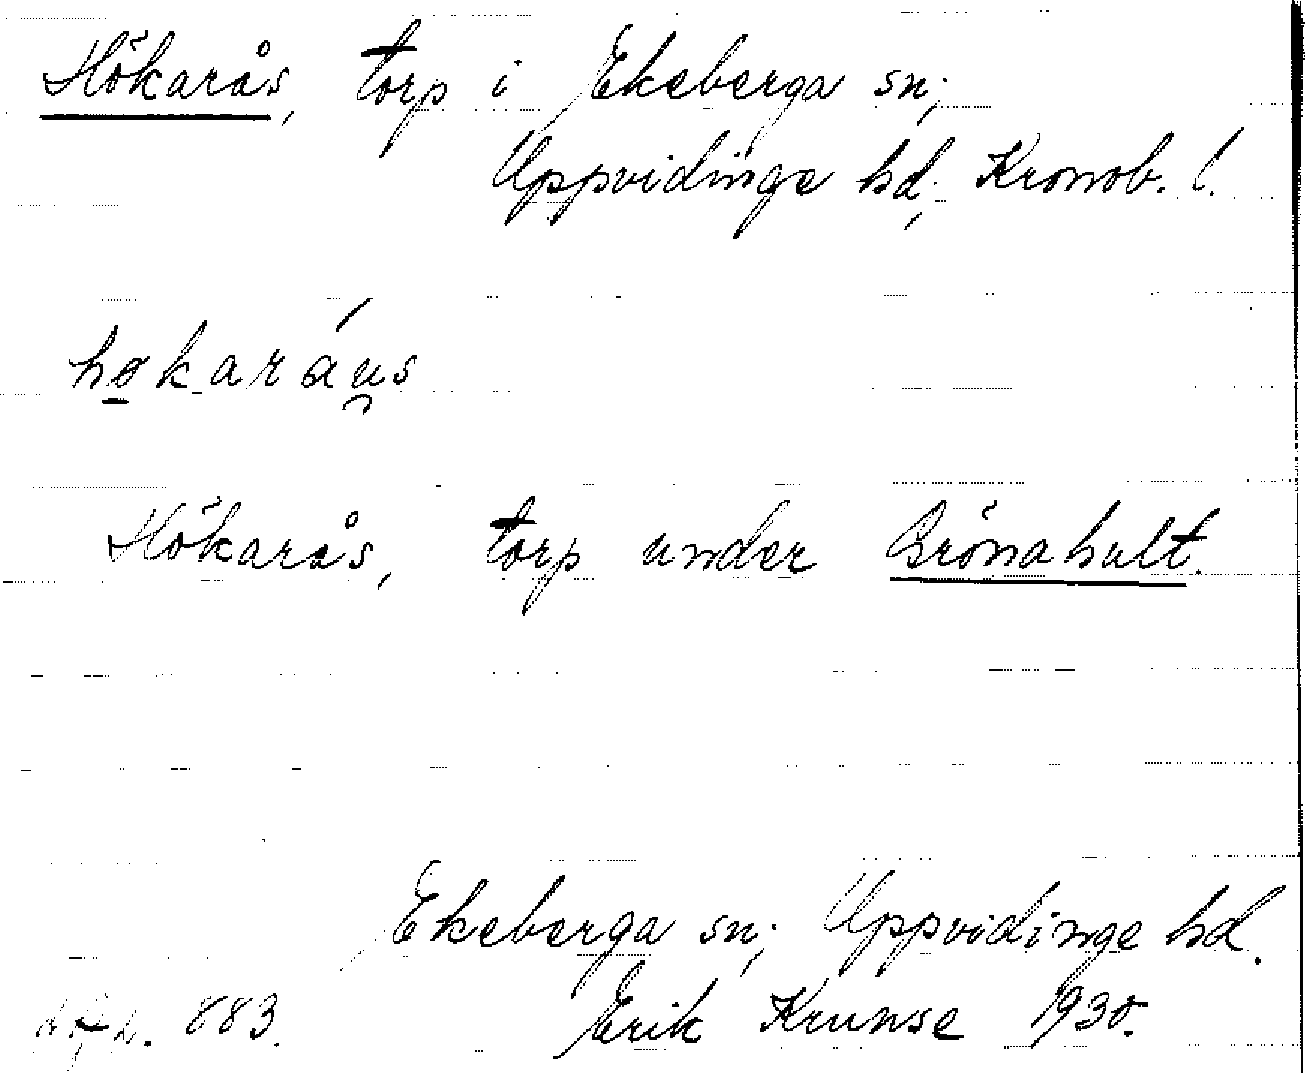 Hökarås, torp i Ekeberga sn;
Uppvidinge hd; Kronob. l.
hokaráus
Hökarås, torp under Brönahult.
Ekeberga sn; Uppvidinge hd.
883. Erik Krunse 1930.